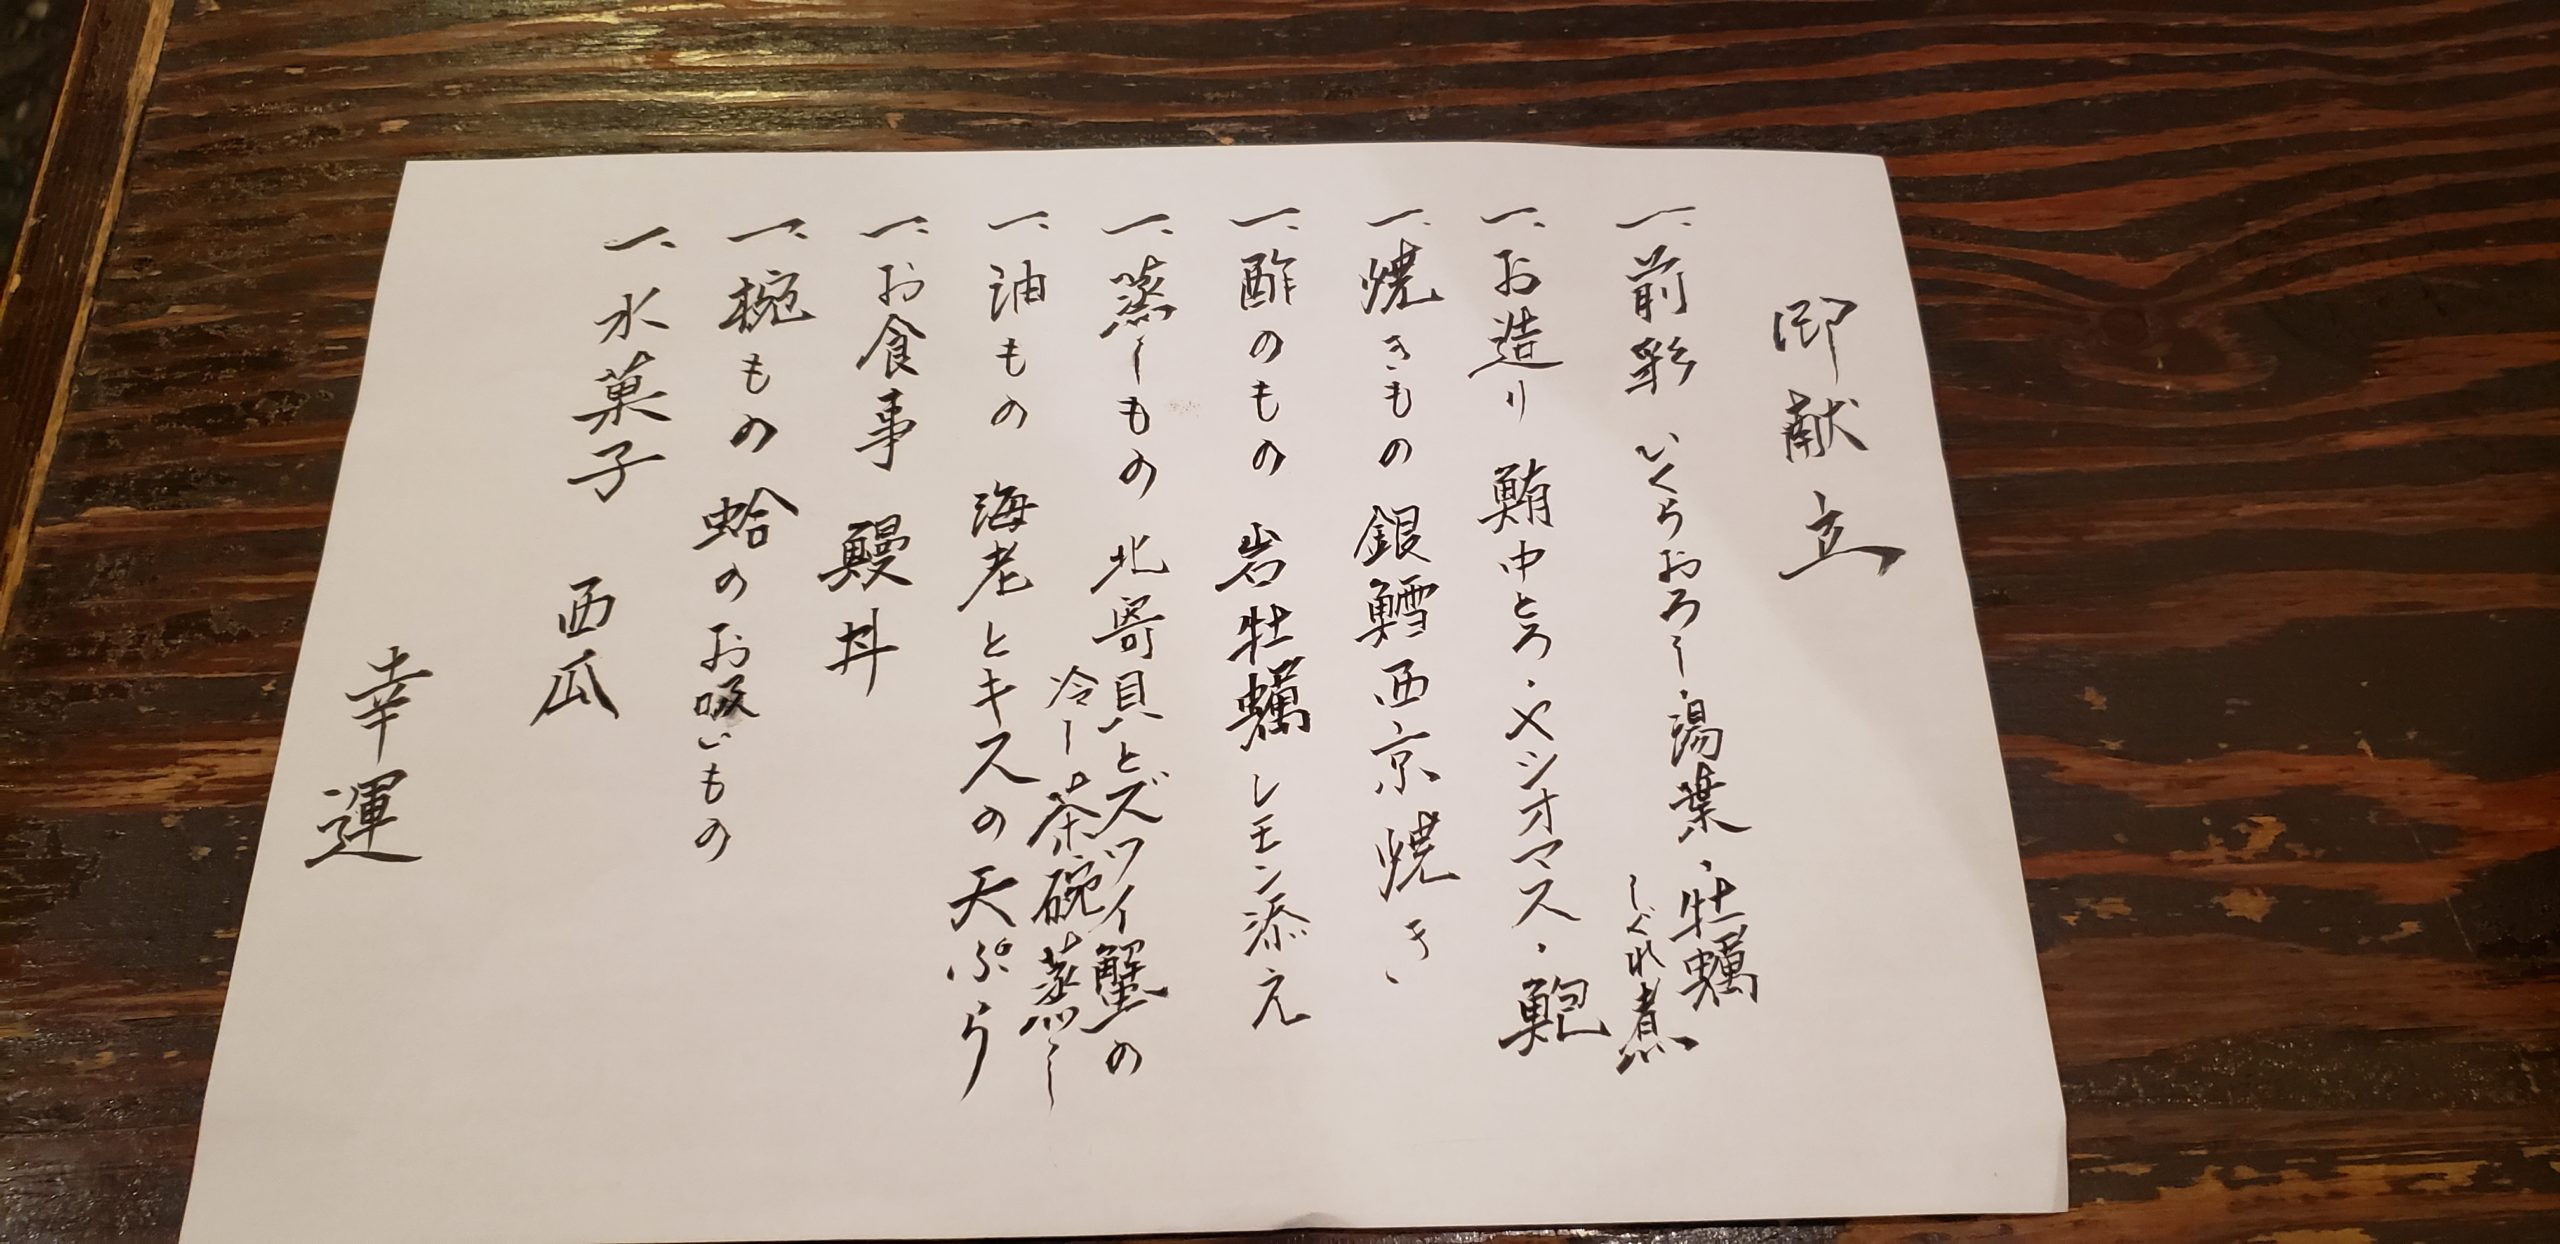 御献立
一、前彩 いくらおろし、湯葉、牡蠣
しぐれ煮
一、お造り 鮪中とろ、メジオマス、鮑
一、焼きもの 銀鱈西京焼き
一、酢のもの 岩牡蠣レモン添え
一、蒸しもの 北寄貝とズワイ蟹の
冷し茶碗蒸し
一、油もの 海老とキスの天ぷら
一、お食事 鰻丼
一、椀もの 蛤のお吸いもの
一、水菓子 西瓜
幸運